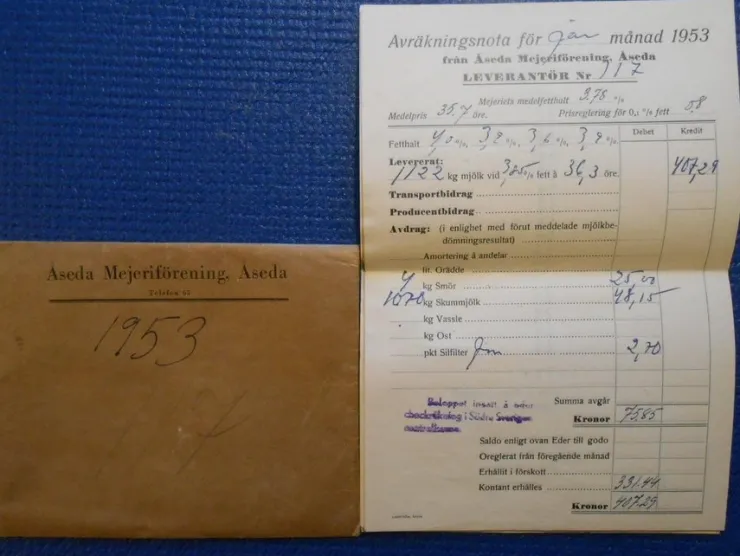 Åseda Mejeriförening, Åseda
Telefon
1953
Avräkningsnota för jan månad 1953
från Åseda Mejeriförening, Åseda
LEVERANTÖR Nr 117
Mejeriets medelfetthalt 3,75 %
Medelpris 35.7 öre. Prisreglering för 0,1 % fett 0,8
Debet Kredit
Fetthalt 4,0 %, %, 3,6 %, %
Levererat:
1122 kg mjölk vid 3,85 % fett å 36,3 öre. 407,29
Transportbidrag
Producentbidrag
Avdrag: (i enlighet med förut meddelade mjölkbe-
dömningsresultat)
Amortering å andelar
lit. Grädde
kg Smör 25,00
1070 kg Skummjölk 48,15
kg Vassle
kg Ost
pkt Silfilter 2,70
Beloppet insatt å
checkräkning i Södra Sveriges
centralkassa
Summa avgår
Kronor 75.85
Saldo enligt ovan Eder till godo
Oreglerat från föregående månad
Erhållit i förskott
Kontant erhålles 331.44
Kronor 407.29